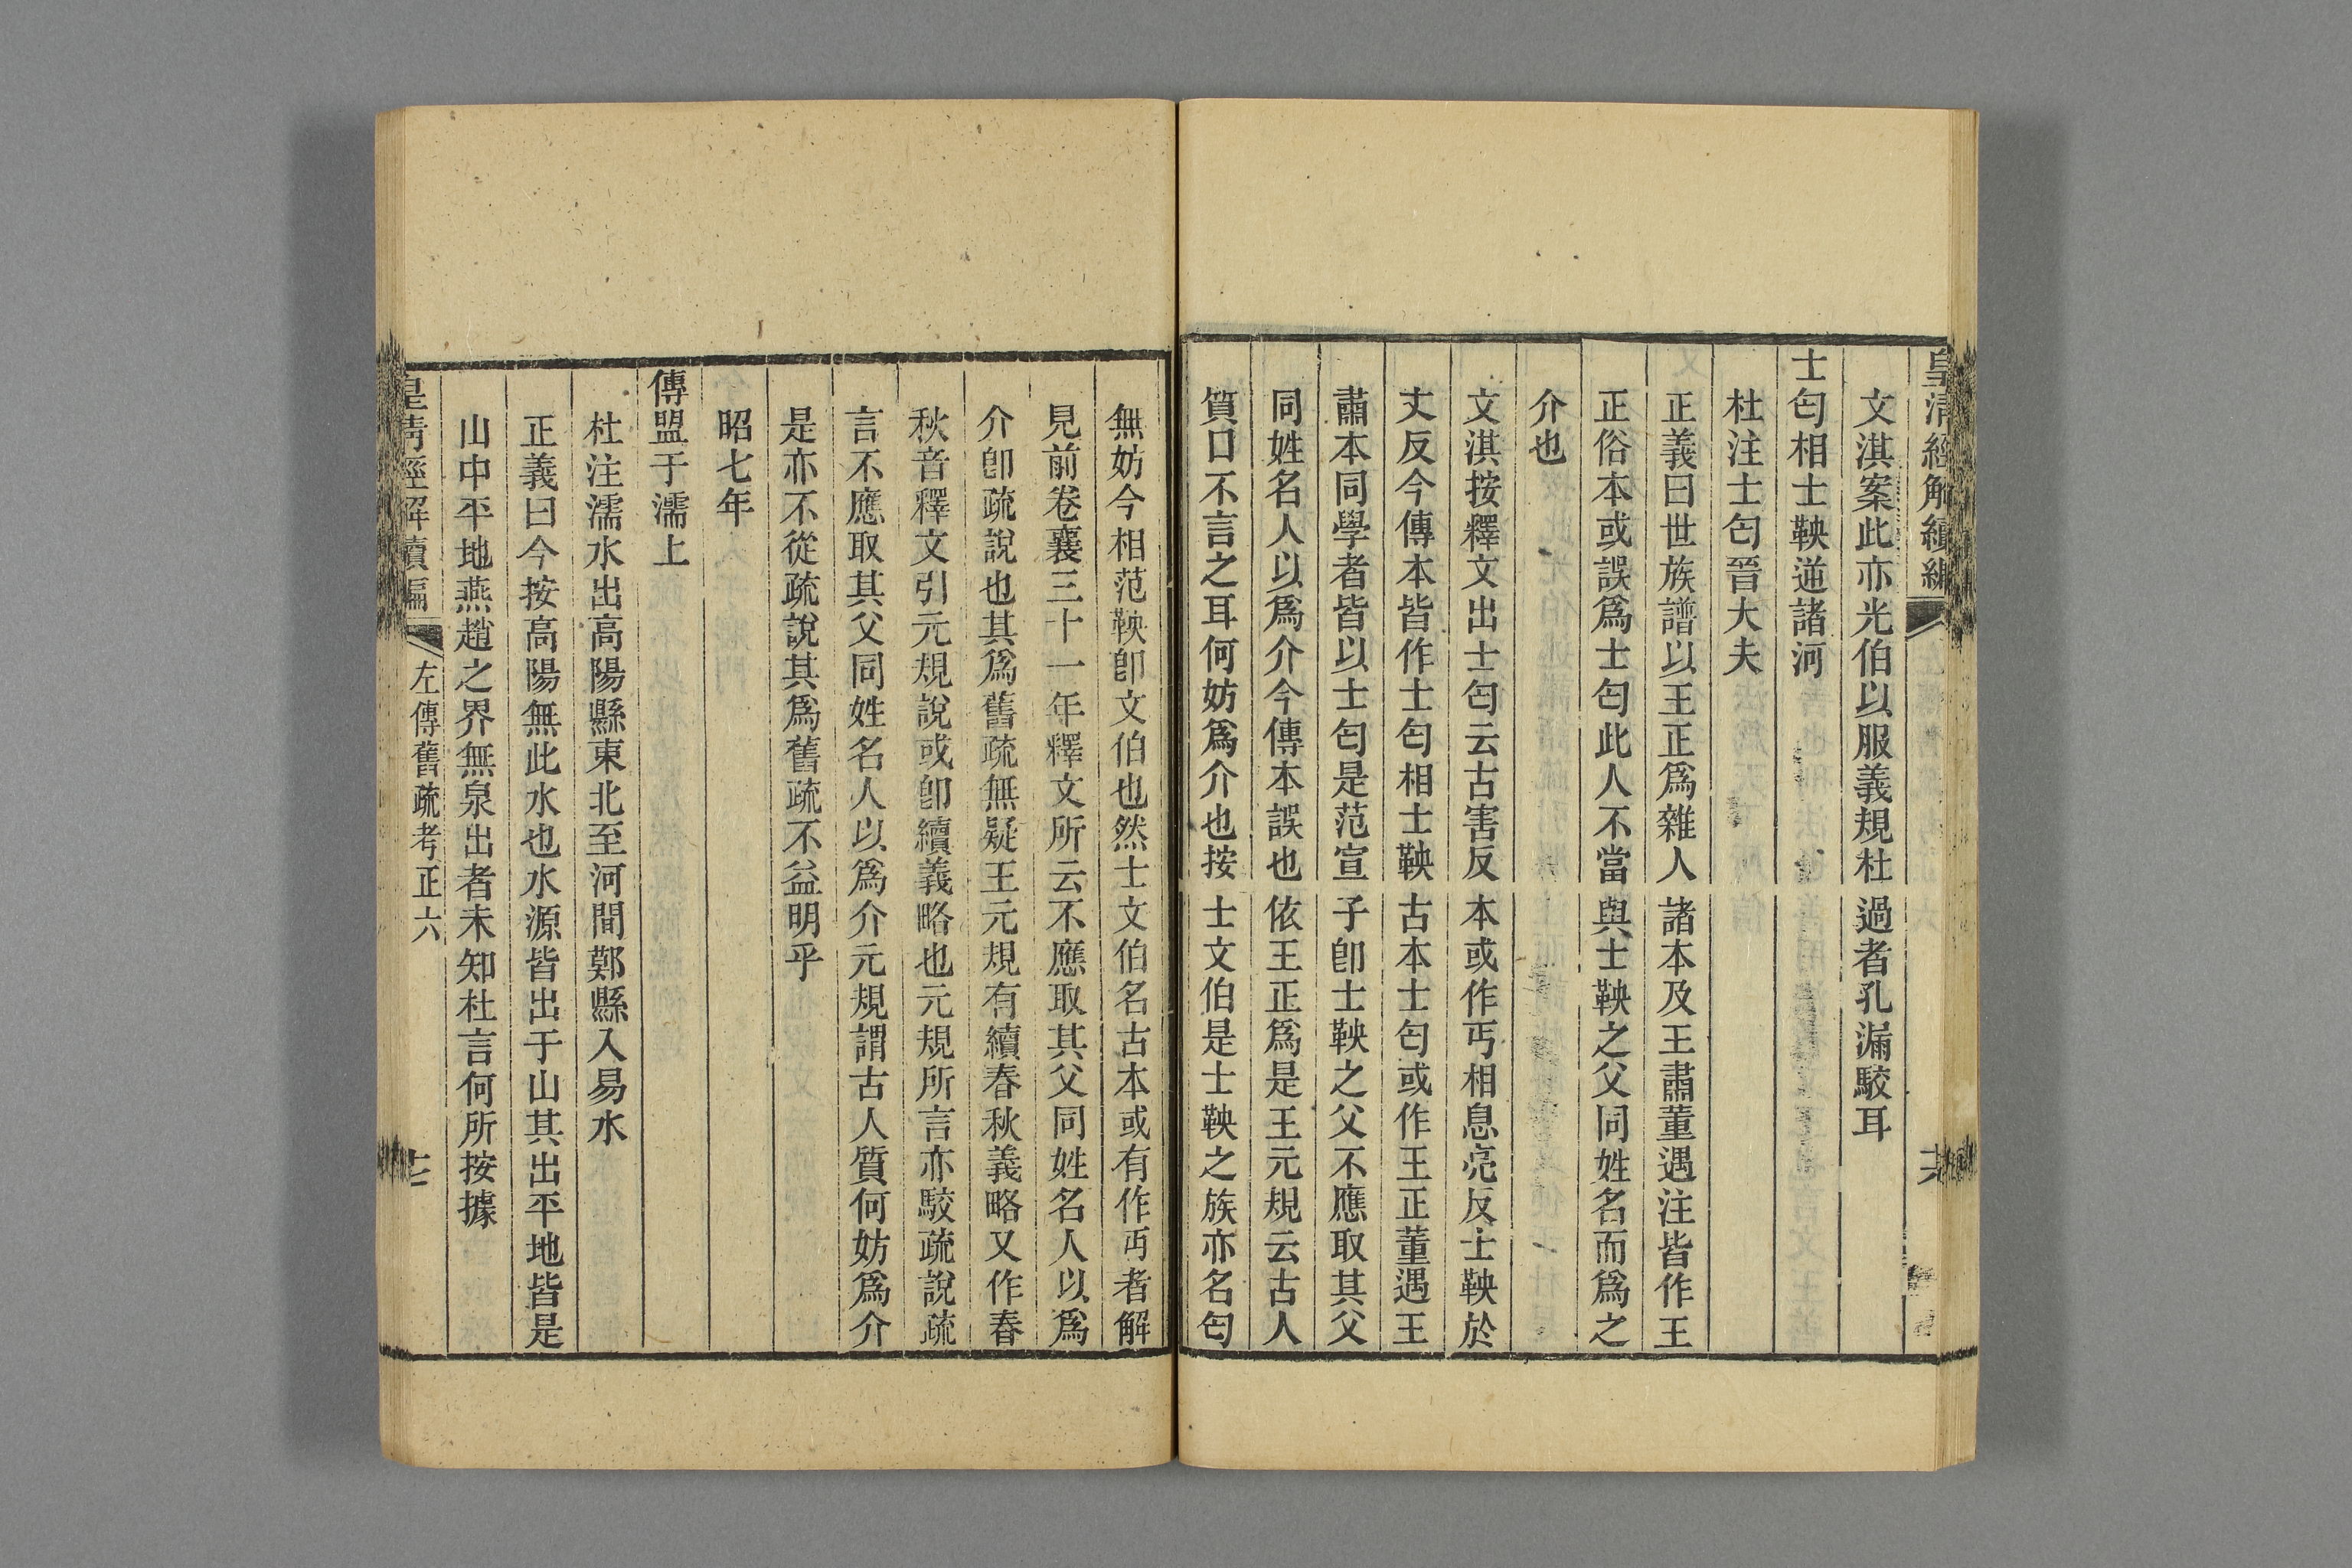 皇清經解續編
文淇案此亦光伯以服義規杜過者孔漏駮耳
士匄相士鞅逆諸河
杜注士匄晉大夫
正義曰世族譜以王正爲雜人諸本及王肅董遇注皆作王
正俗本或誤爲士匄此人不當與士鞅之父同姓名而爲之
介也
文淇按釋文出士匄云古害反本或作丐相息亮反士鞅於
丈反今傳本皆作士匄相士鞅古本士匄或作王正董遇王
肅本同學者皆以士匄是范宣子卽士鞅之父不應取其父
同姓名人以爲介今傳本誤也依王正爲是王元規云古人
質口不言之耳何妨爲介也按士文伯是士鞅之族亦名匄
無妨今相范鞅卽文伯也然士文伯名古本或有作丐者解
見前卷襄三十一年釋文所云不應取其父同姓名人以爲
介卽疏說也其爲舊疏無疑王元規有續春秋義略又作春
秋音釋文引元規說或卽續義略也元規所言亦駮疏說疏
言不應取其父同姓名人以爲介元規謂古人質何妨爲介
是亦不從疏說其爲舊疏不益明乎
昭七年
傳盟于濡上
杜注濡水出高陽縣東北至河間鄚縣入易水
正義曰今按高陽無此水也水源皆出于山其出平地皆是
山中平地燕趙之界無泉出者未知杜言何所按據
皇清經解續編 左傳舊疏考正六